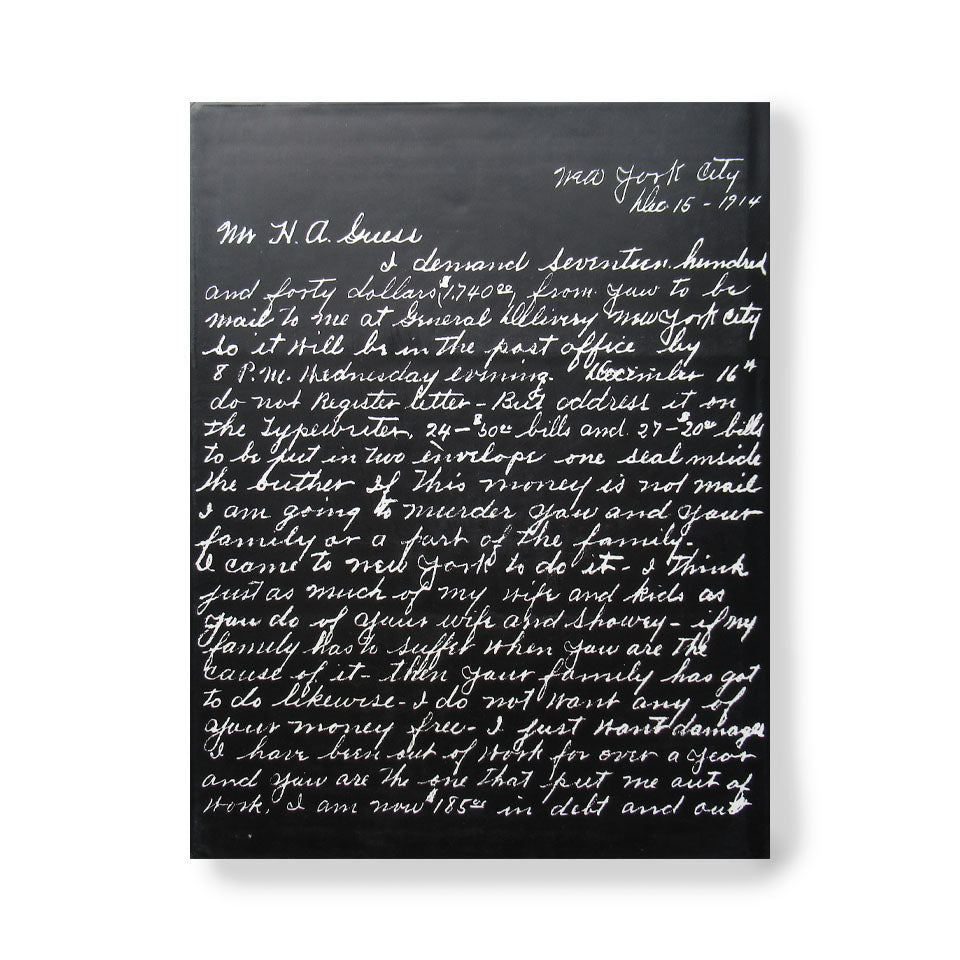 New York City
Dec 15 - 1914
Mr H. A. Guess
I demand seventeen hundred
and forty dollars ($1,740.00) from yaw to be
mail to me at General Dilivery New York City
so it will be in the post office by
8 P.M. Wednesday evening. December 16th
do not Register letter - But address it on
the typewriter, 24 - $50.00 bills and 27 - $20.00 bills
to be put in two envelope one seal inside
the outher If this money is not mail
I am going to murder yaw and your
family or a part of the family.
I came to New York to do it - I think
just as much of my wife and kids as
you do of your wife and - if my
family has to suffer when yaw are the
cause of it - then your family has got
to do likewise - I do not want any of
your money free - I just want damages
I have been out of work for over a year
and yaw are the one that put me out of
work, I am now $185.00 in debt and out